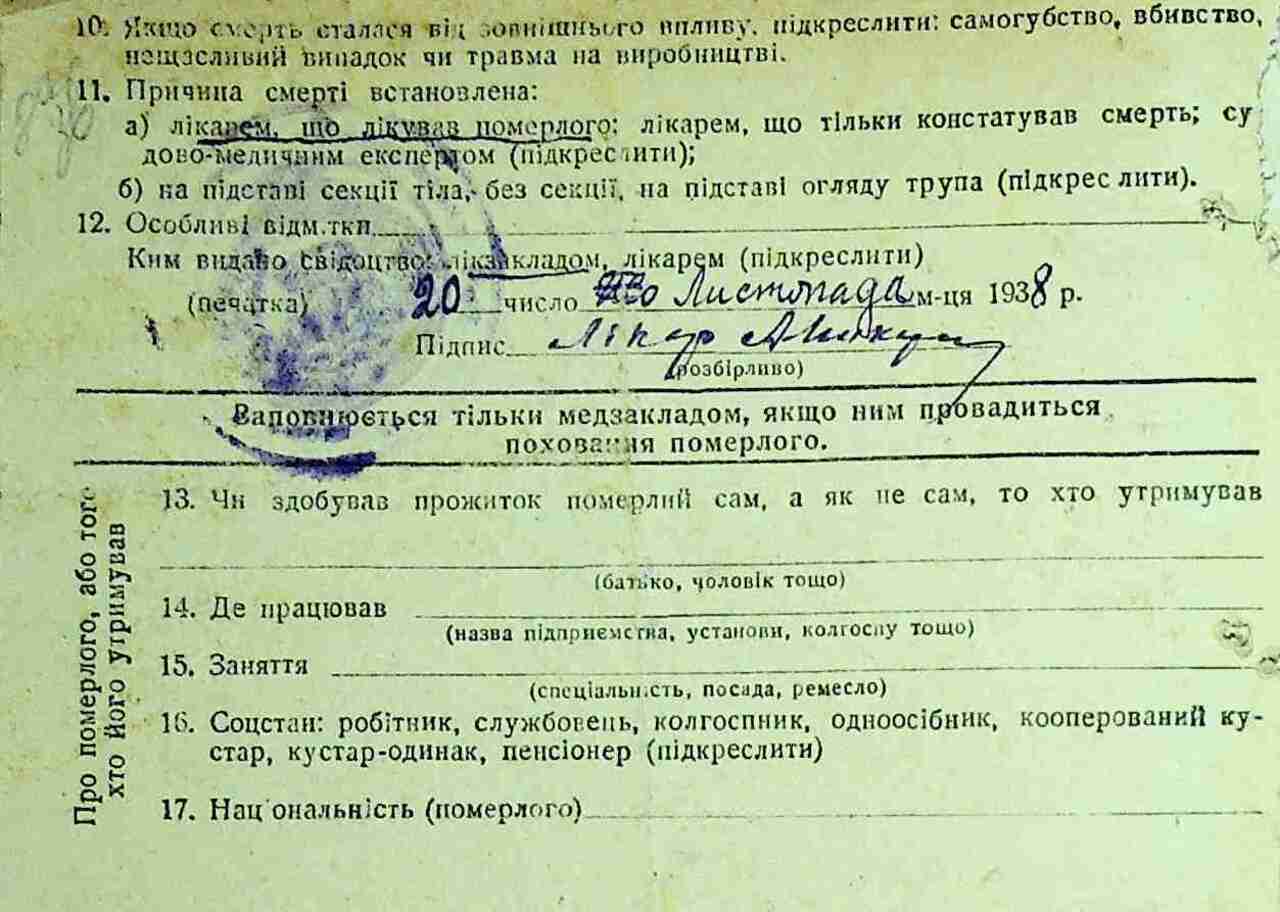 10. Якщо смерть сталася від зовнішнього впливу, підкреслити: самогубство, вбивство,
нещасливий випадок чи травма на виробництві.
11. Причина смерті встановлена:
а) лікарем, що лікував померлого; лікарем, що тільки констатував смерть; су
дово-медичним експертом (підкреслити);
б) на підставі секції тіла, без секції, на підставі огляду трупа (підкреслити).
12. Особливі відмітки
Ким видано свідоцтво: лікзакладом, лікарем (підкреслити)
(печатка) 20 число Листопада м-ця 1938 р.
Підпис Лікар
(розбірливо)
Заповнюється тільки медзакладом, якщо ним провадиться
поховання померлого.
Про померлого, або того
хто його утримував
13. Чи здобував прожиток померлий сам, а як не сам, то хто утримував
(батько, чоловік тощо)
14. Де працював
(назва підприємства, установи, колгоспу тощо)
15. Заняття
(спеціальність, посада, ремесло)
16. Соцстан: робітник, службовець, колгоспник, одноосібник, кооперований ку-
стар, кустар-одинак, пенсіонер (підкреслити)
17. Національність (померлого)